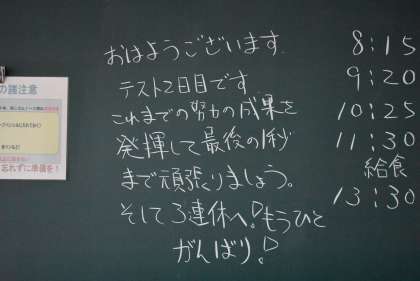 おはようございます.
テスト2日目です
これまでの努力の成果を
発揮して最後の1秒
まで頑張りましょう。
そして3連休へ!もうひと
がんばり!
8:15
9:20
10:25
11:30
給食
13:30
の諸注意
忘れずに準備を!